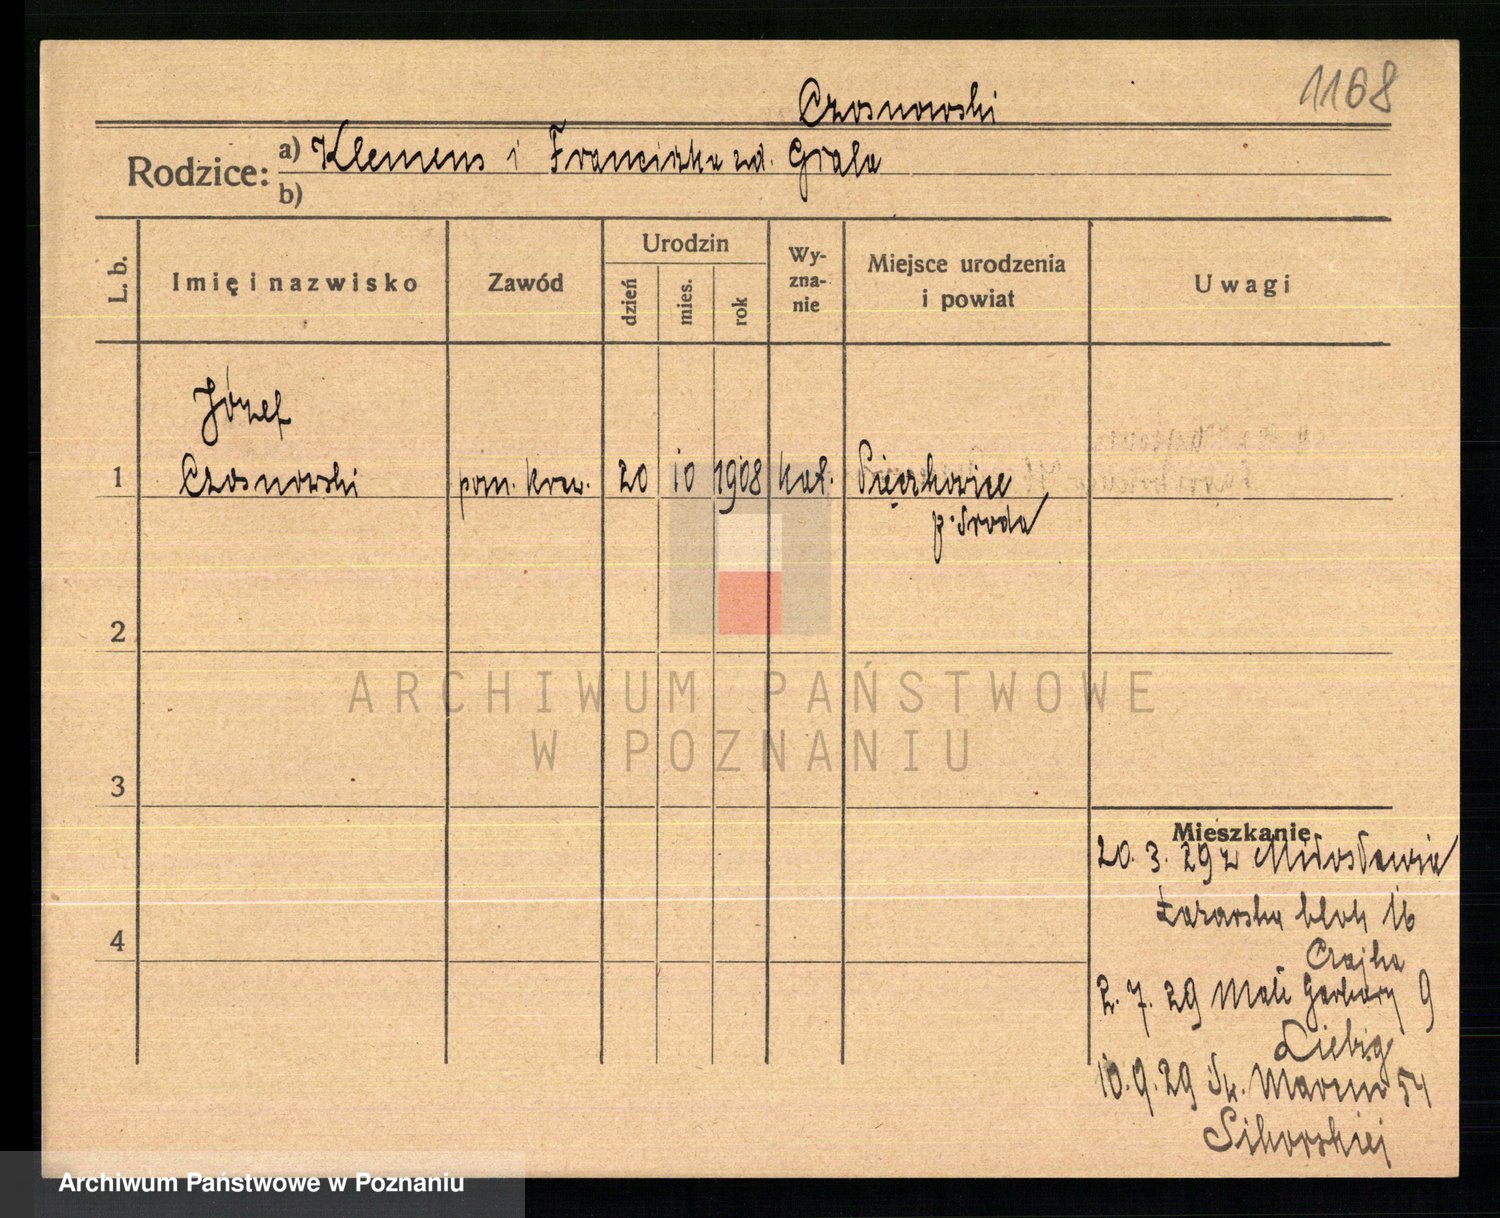 1168
Czosnowski
Rodzice: a) Klemens i Franciszka zd. Grala
b)
L. b.
Imię i nazwisko
Zawód
Urodzin
dzień
mies.
rok
Wy-
zna-
nie
Miejsce urodzenia
i powiat
Uwagi
Józef
1 Czosnowski pom. krew. 20 10 1908 kat. Pięczkowice
p. Środa
2
3
4
Mieszkanie
20. 3. 29 z Miłosławia
Łazarska blok 16
Czajka
2. 7. 29 Małe Garbary 9
Liebig
10. 9. 29 Św. Marcin 54
Sikorskiej
ARCHIWUM PAŃSTWOWE
W POZNANIU
Archiwum Państwowe w Poznaniu